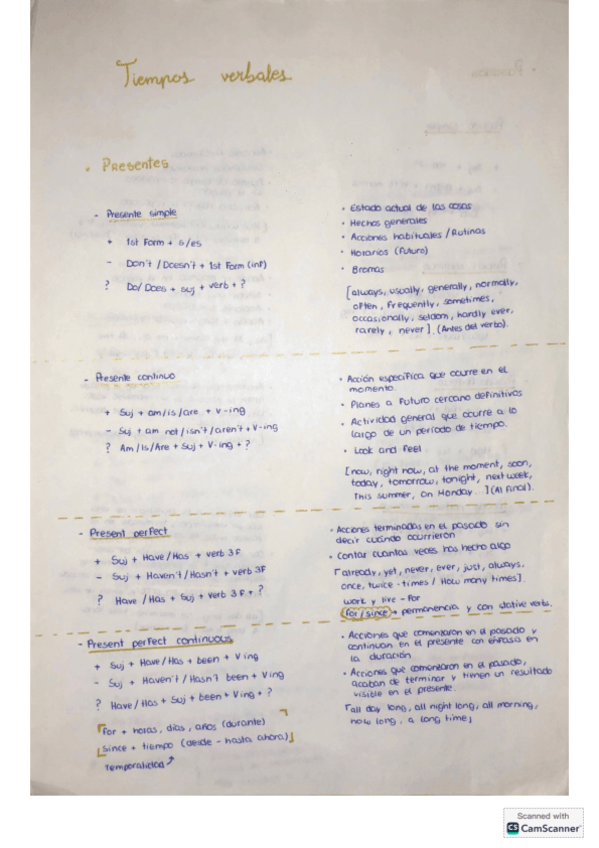 Tiempos verbales
• Presentes
- Presente simple
+ 1st Form + s/es
- Don't / Doesn't + 1st Form (inf)
? Do/ Does + suj + verb + ?
• Estado actual de las cosas
• Hechos generales
• Acciones habituales / Rutinas
• Horarios (Futuro)
• Bromas
[always, usually, generally, normally,
often, frequently, sometimes,
occasionally, seldom, hardly ever,
rarely, never]. (Antes del verbo).
- Presente continuo
+ Suj + am/is/are + V-ing
- Suj + am not/isn't/aren't + V-ing
? Am/Is/Are + Suj + V-ing + ?
• Acción específica que ocurre en el
momento.
• Planes a Futuro cercano definitivos
• Actividad general que ocurre a lo
largo de un período de tiempo.
• Look and feel
[now, right now, at the moment, soon,
today, tomorrow, tonight, next week,
this summer, on Monday...] (Al final).
- Present perfect
+ Suj + Have/Has + verb 3F
- Suj + Haven't / Hasn't + verb 3F
? Have / Has + Suj + verb 3F + ?
• Acciones terminadas en el pasado sin
decir cuándo ocurrieron
• Contar cuantas veces has hecho algo
[already, yet, never, ever, just, always,
once, twice - times / How many times].
work y live - for
(for / since) + permanencia y con stative verbs.
- Present perfect continuous
+ Suj + Have / Has + been + V ing
- Suj + Haven't / Hasn't been + Ving
? Have / Has + Suj + been + Ving + ?
[for + horas, días, años (durante)
since + tiempo (desde - hasta ahora)]
Temporalidad
• Acciones que comenzaron en el pasado y
continuan en el presente con énfasis en
la duración.
• Acciones que comenzaron en el pasado,
acaban de terminar y tienen un resultado
visible en el presente.
[all day long, all night long, all morning,
how long, a long time]
Scanned with
CS CamScanner